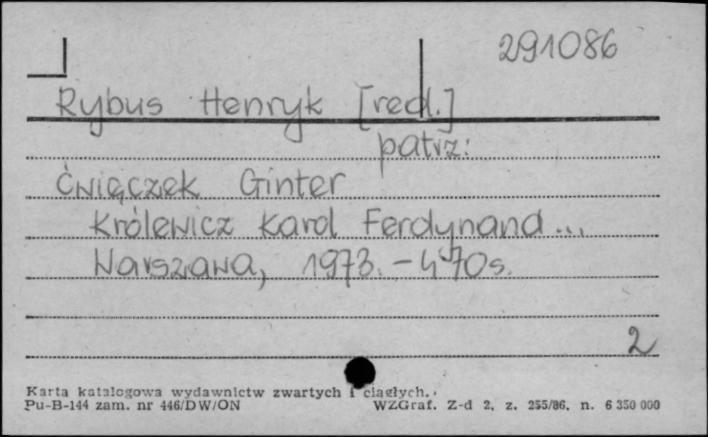 291086
Rybus Henryk [red.]
patrz:
Ćwięczek Ginter
Królewicz Karol Ferdynand...
Warszawa, 1973. – 470s.
2
Karta katalogowa wydawnictw zwartych i ciągłych.
Pu-B-144 zam. nr 446/DW/ON WZGraf. Z-d 2, z. 255/86, n. 6 350 000